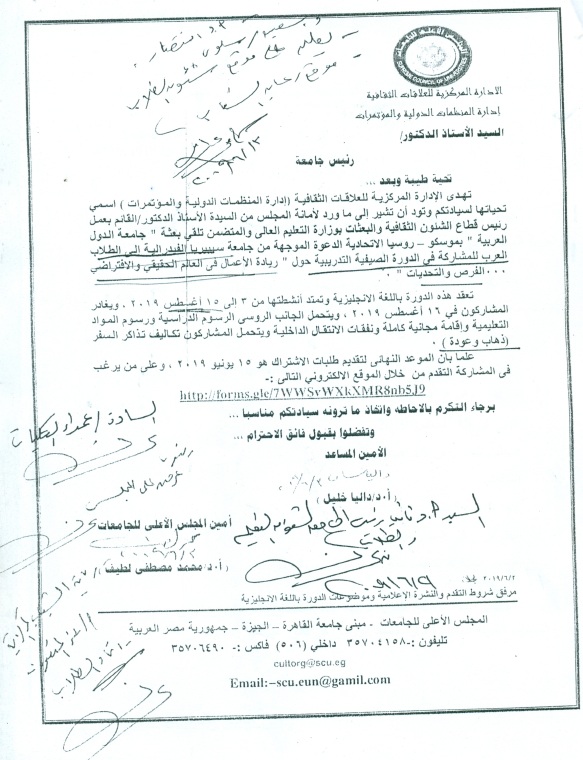 SUPREME COUNCIL OF UNIVERSITIES
الادارة المركزية للعلاقات الثقافية
إدارة المنظمات الدولية والمؤتمرات
السيد الأستاذ الدكتور/
رئيس جامعة
تحية طيبة وبعد ...
تهدى الإدارة المركزية للعلاقات الثقافية (إدارة المنظمات الدولية والمؤتمرات ) اسمي
تحياتها لسيادتكم وتود أن تشير إلى ما ورد لأمانة المجلس من السيدة الأستاذ الدكتور/القائم بعمل
رئيس قطاع الشئون الثقافية والبعثات بوزارة التعليم العالى والمتضمن تلقي بعثة " جامعة الدول
العربية " بموسكو – روسيا الاتحادية الدعوة الموجهة من جامعة سيبيريا الفيدرالية الى الطلاب
العرب للمشاركة في الدورة الصيفية التدريبية حول " ريادة الأعمال فى العالم الحقيقي والافتراضي
...الفرص والتحديات " .
تعقد هذه الدورة باللغة الانجليزية وتمتد أنشطتها من ٣ الى ١٥ أغسطس ٢٠١٩ ، ويغادر
المشاركون في ١٦ أغسطس ٢٠١٩ ، ويتحمل الجانب الروسى الرسوم الدراسية ورسوم المواد
التعليمية وإقامة مجانية كاملة ونفقات الانتقال الداخلية ويتحمل المشاركون تكاليف تذاكر السفر
(ذهاب وعودة ) .
علما بأن الموعد النهائى لتقديم طلبات الاشتراك هو ١٥ يونيو ٢٠١٩ ، وعلى من يرغب
فى المشاركة التقدم من خلال الموقع الالكتروني التالى :-
http://forms.gle/7WWSvWXkXMR8nb5J9
برجاء التكرم بالاحاطه واتخاذ ما ترونه سيادتكم مناسبا ...
وتفضلوا بقبول فائق الاحترام ...
الأمين المساعد
(أ.د/داليا خليل )
أمين المجلس الأعلى للجامعات
(أ.د/محمد مصطفى لطيف )
السادة / عمداء الكليات
٢٠١٩/٦/٩
٢٠١٩/٦/٢
مرفق شروط التقدم والنشرة الإعلامية وموضوعات الدورة باللغة الانجليزية
المجلس الأعلى للجامعات – مبنى جامعة القاهرة – الجيزة – جمهورية مصر العربية
تليفون :- ٣٥٧٠٤١٥٨ داخلي (٥٠٦) فاكس :- ٣٥٧٠٦٤٩٠
cultorg@scu.eg
Email:–scu.eun@gamil.com